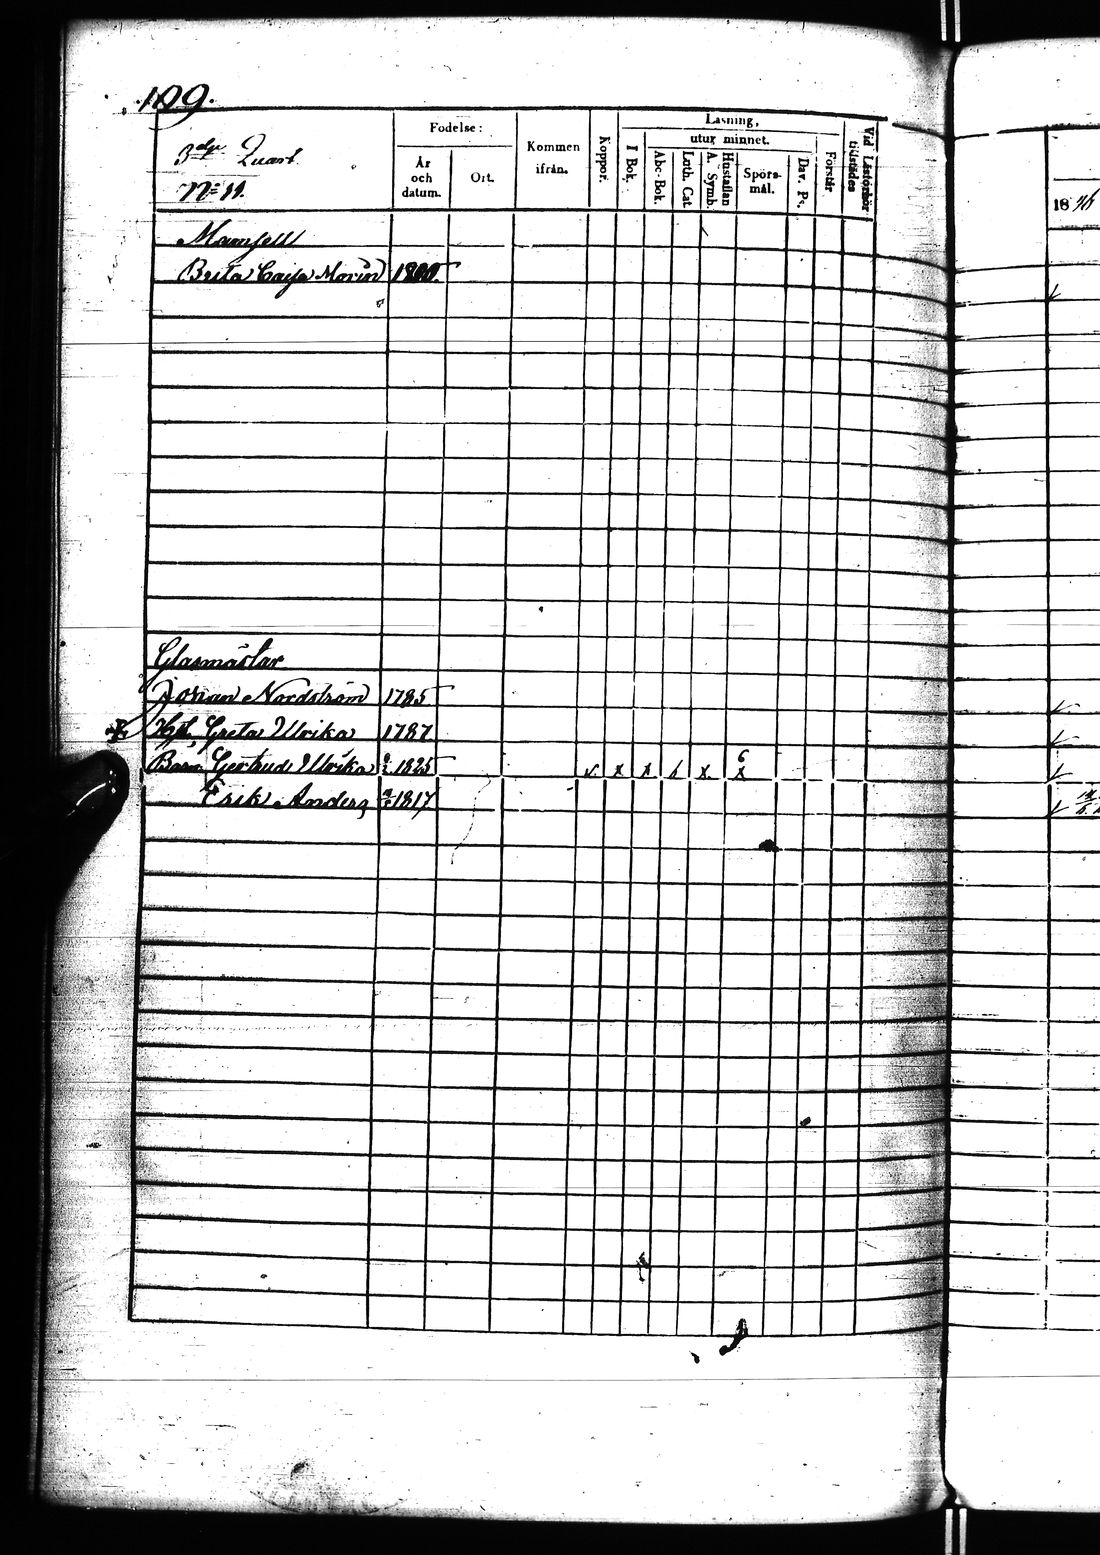 109.
3dje Quart.
No 11.
Födelse:
År och datum.
Ort.
Kommen ifrån.
Koppor.
Läsning,
I Bok.
utur minnet.
Abc-Bok.
Luth. Cat.
A. Symb.
Hustaflan
Spörs-mål.
Dav. Ps.
Förstår
Vid Läsförhör tillstädes
18 46
Mamsell
Brita Cajsa Morin 1800.
Glasmästar
Johan Nordström 1785
Hst. Greta Ulrika 1787
Barn Gertrud Ulrika 1825 6
Erik Anders 1817